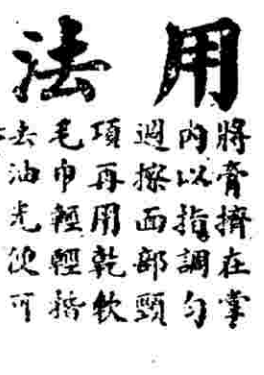 用法
將膏擠在掌
內以指調勻
遍擦面部頸
項再用乾軟
毛巾輕輕揩
去油光便可